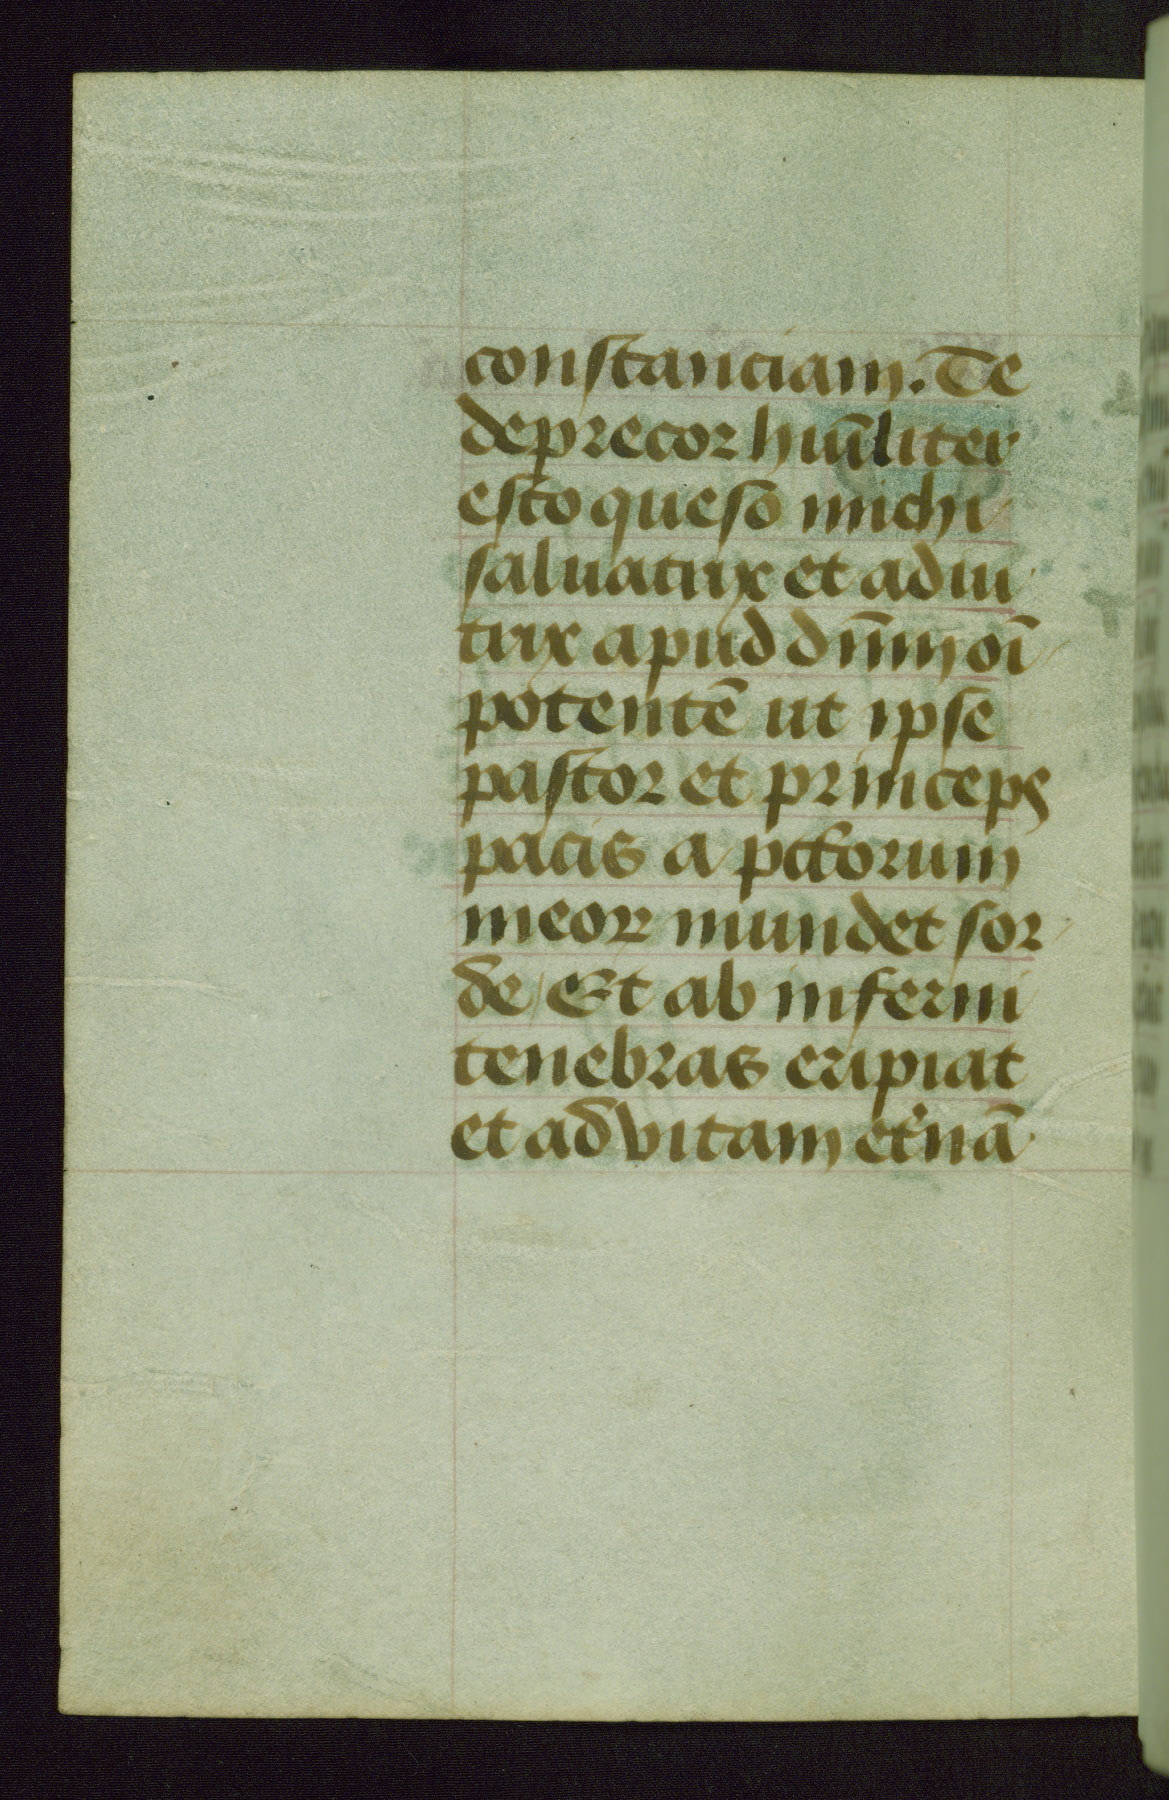 constanciam. Te
deprecor huīliter
esto queso michi
saluatrix et adiu
trix apud dn̄m oī
potentē ut ipse
pastor et princeps
pacis a pctōrum
meoꝝ mundet sor
de Et ab inferni
tenebras eripiat
et ad vitam et̾nā